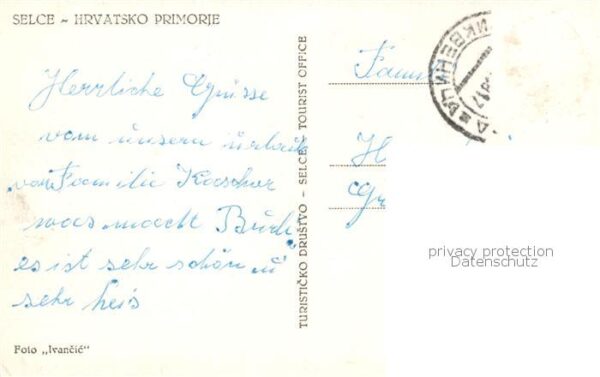 SELCE - HRVATSKO PRIMORJE
Herrliche Grüsse
vom unsern Urlaub
von Familie
was macht
es ist sehr schön u
sehr heis
Foto „Ivančić"
TURISTIČKO DRUŠTVO - SELCE, TOURIST OFFICE
Fam
H
Gr
privacy protection
Datenschutz